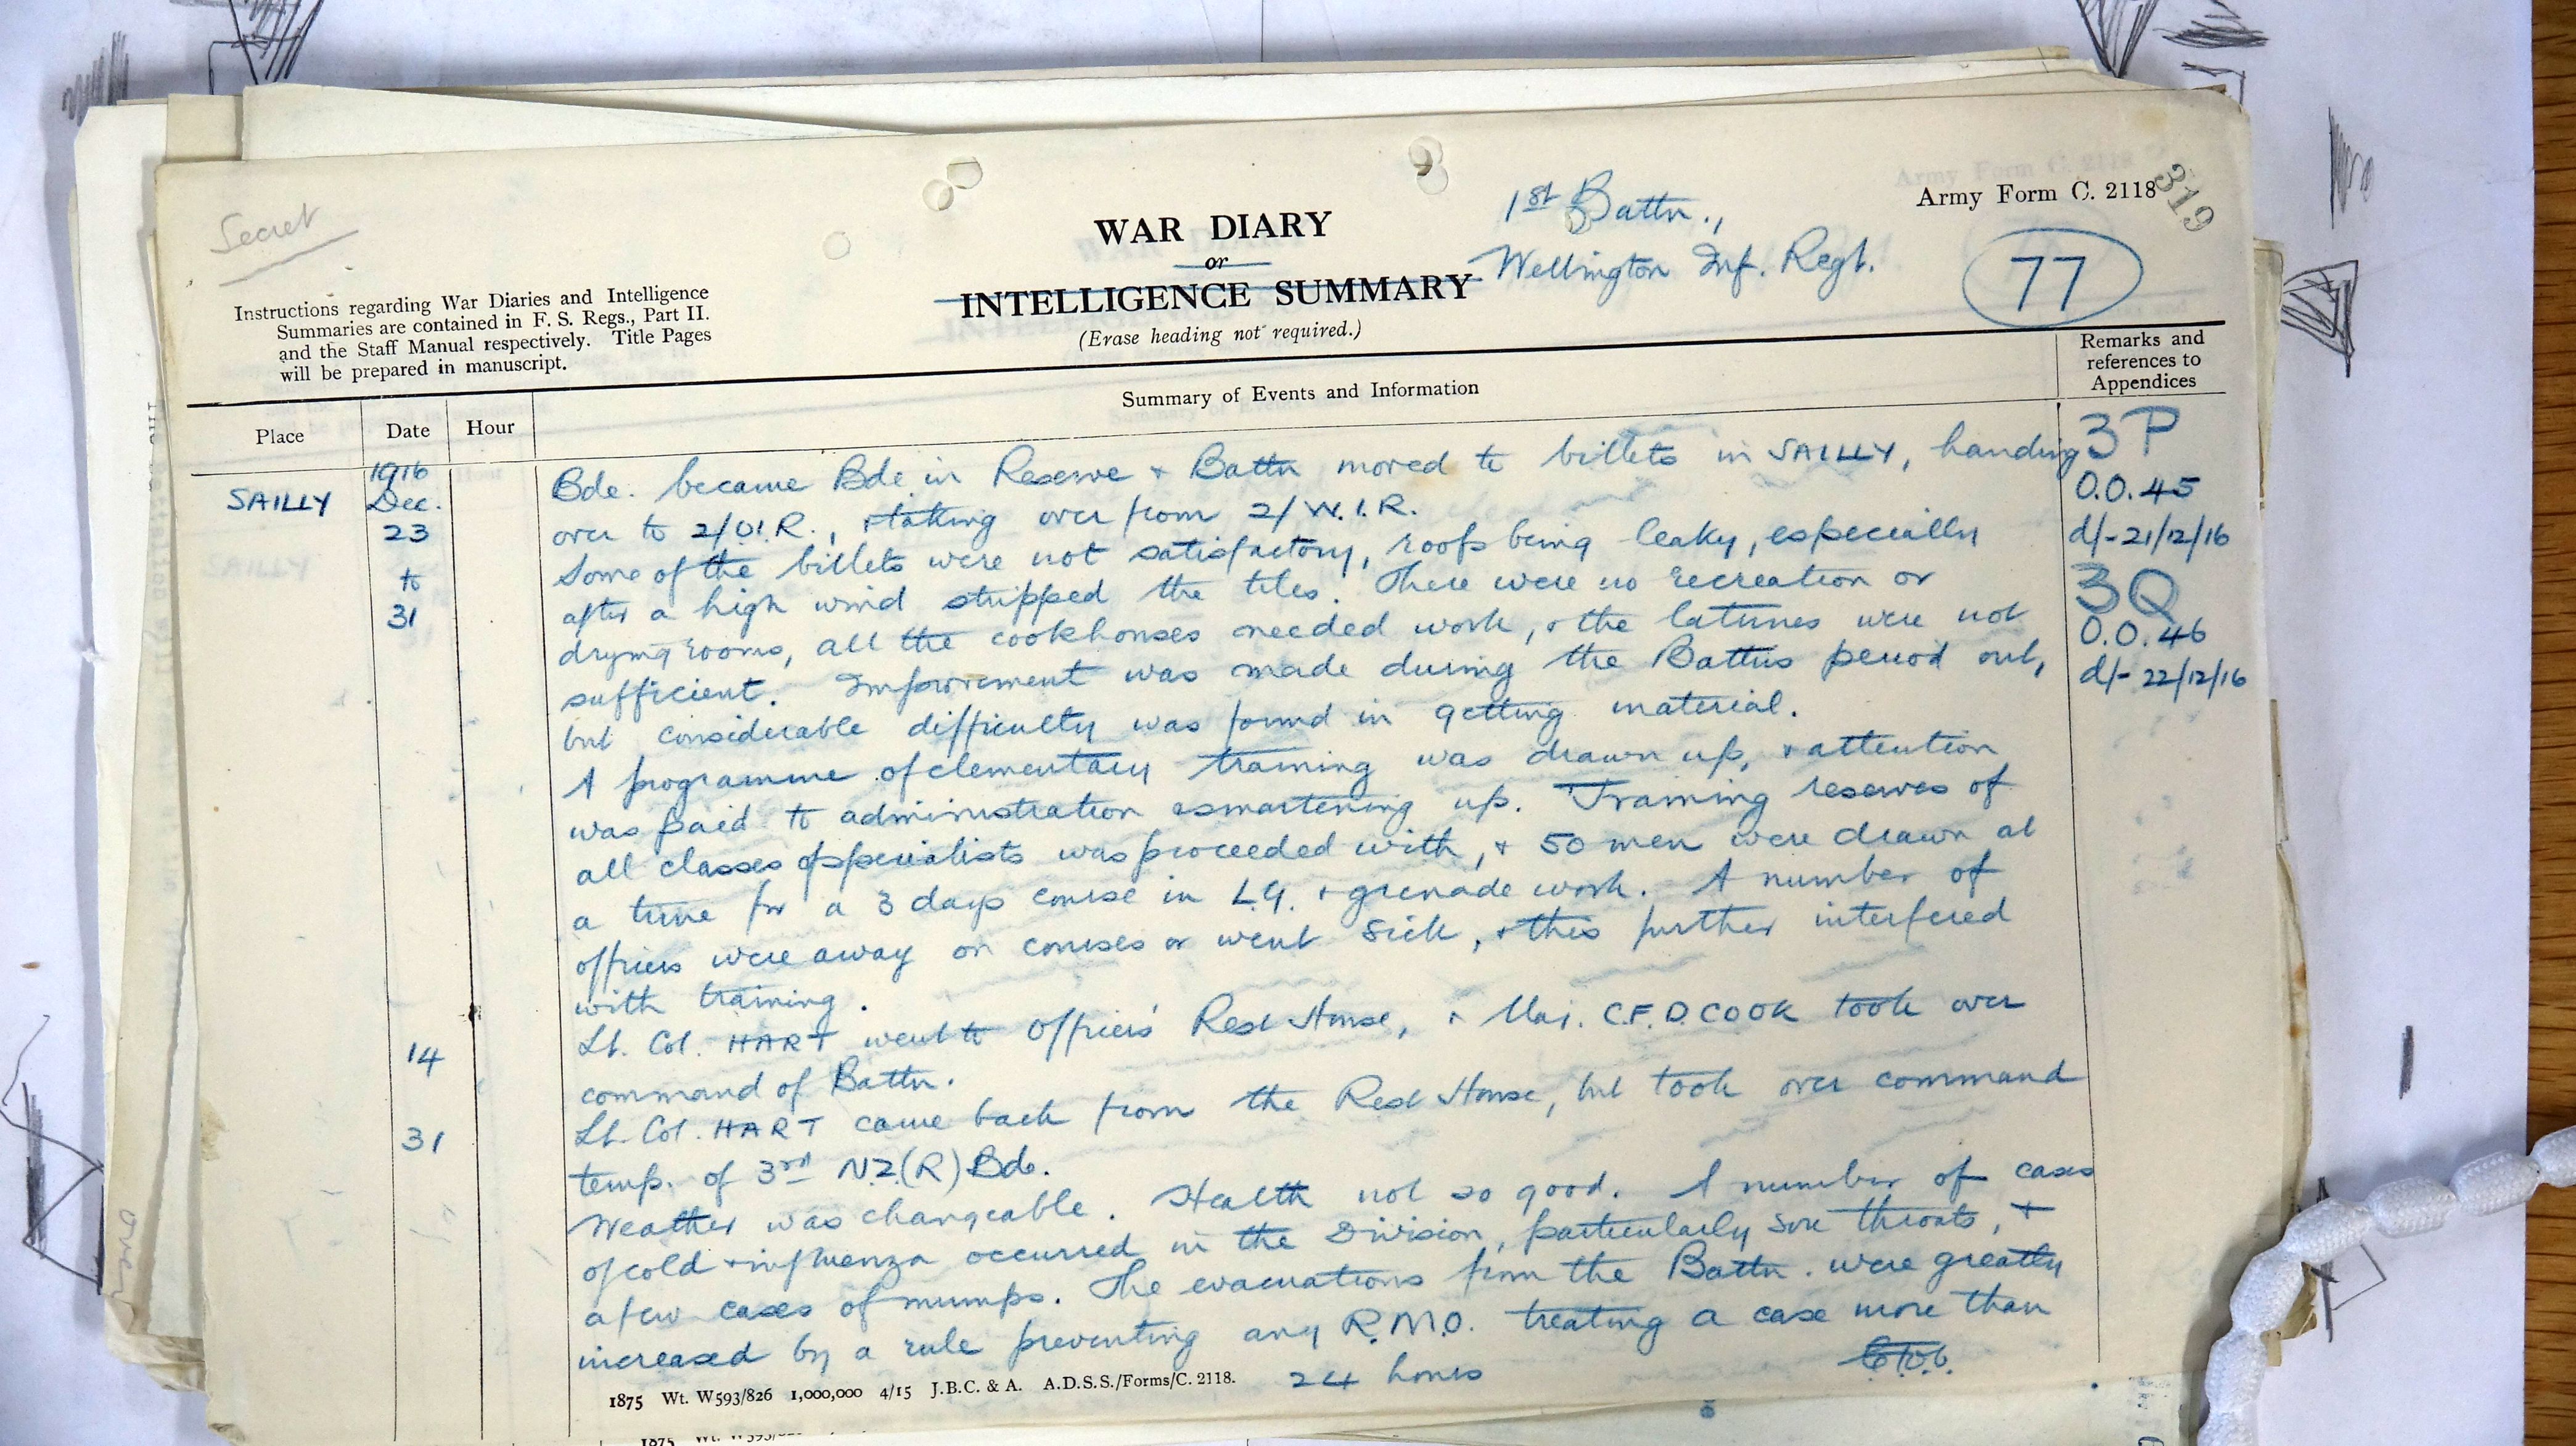 Secret
Instructions regarding War Diaries and Intelligence
Summaries are contained in F. S. Regs., Part II.
and the Staff Manual respectively. Title Pages
will be prepared in manuscript.
WAR DIARY
or
INTELLIGENCE SUMMARY
(Erase heading not required.)
1st Battn.,
Wellington Inf. Regt.
Army Form C. 2118
319
77
Place
Date
Hour
Summary of Events and Information
Remarks and
references to
Appendices
SAILLY
1916
Dec.
23
to
31
Bde. became Bde in Reserve & Battn moved to billets in SAILLY, handing
over to 2/O.I.R., & taking over from 2/W.I.R.
Some of the billets were not satisfactory, roofs being leaky, especially
after a high wind stripped the tiles. There were no recreation or
drying rooms, all the cookhouses needed work, & the latrines were not
sufficient. Improvement was made during the Battns period out,
but considerable difficulty was found in getting material.
A programme of elementary training was drawn up, & attention
was paid to administration & smartening up. Training reserves of
all classes of specialists was proceeded with, & 50 men were drawn at
a time for a 3 days course in L.G. & grenade work. A number of
officers were away on courses or went sick, & this further interfered
with training.
14
Lt. Col. HART went to Officers' Rest House, & Maj. C.F.D. COOK took over
command of Battn.
31
Lt. Col. HART came back from the Rest House, but took over command
temp. of 3rd N.Z.(R) Bde.
Weather was changeable. Health not so good. A number of cases
of cold & influenza occurred in the Division, particularly sore throats, &
a few cases of mumps. The evacuations from the Battn. were greatly
increased by a rule preventing any R.M.O. treating a case more than
24 hours
3P
O.O. 45
d/- 21/12/16
3Q
O.O. 46
d/- 22/12/16
1875 Wt. W593/826 1,000,000 4/15 J.B.C. & A. A.D.S.S./Forms/C. 2118.